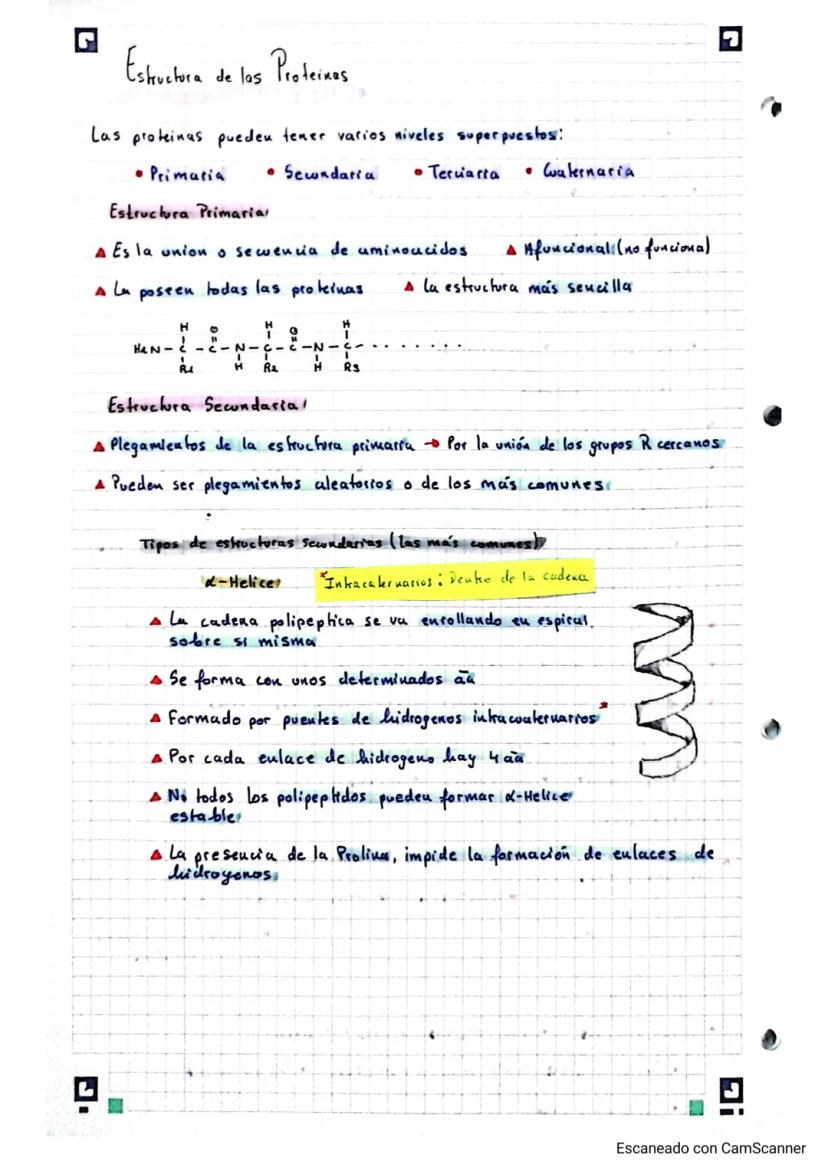 Estructura de las Proteinas
Las proteinas pueden tener varios niveles superpuestos:
• Primaria • Secundaria • Terciaria • Cuaternaria
Estructura Primaria
▲ Es la union o secuencia de aminoacidos ▲ Afuncional (no funciona)
▲ La poseen todas las proteinas ▲ La estructura más sencilla
H O H O H
H2N-C-C-N-C-C-N-C-.........
R1 H R2 H R3
Estructura Secundaria
▲ Plegamientos de la estructura primaria → Por la unión de los grupos R cercanos
▲ Pueden ser plegamientos aleatorios o de los más comunes
Tipos de estructuras secundarias (las más comunes)
α-Helice *Intracaternarios: Dentro de la cadena
▲ La cadena polipeptica se va enrollando en espiral
sobre si misma
▲ Se forma con unos determinados āā
▲ Formado por puentes de hidrogenos intracuaternarios*
▲ Por cada enlace de hidrogeno hay 4 āā
▲ No todos los polipeptidos pueden formar α-Helice
estable
▲ La presencia de la Prolina, impide la formación de enlaces de
hidrogenos
Escaneado con CamScanner